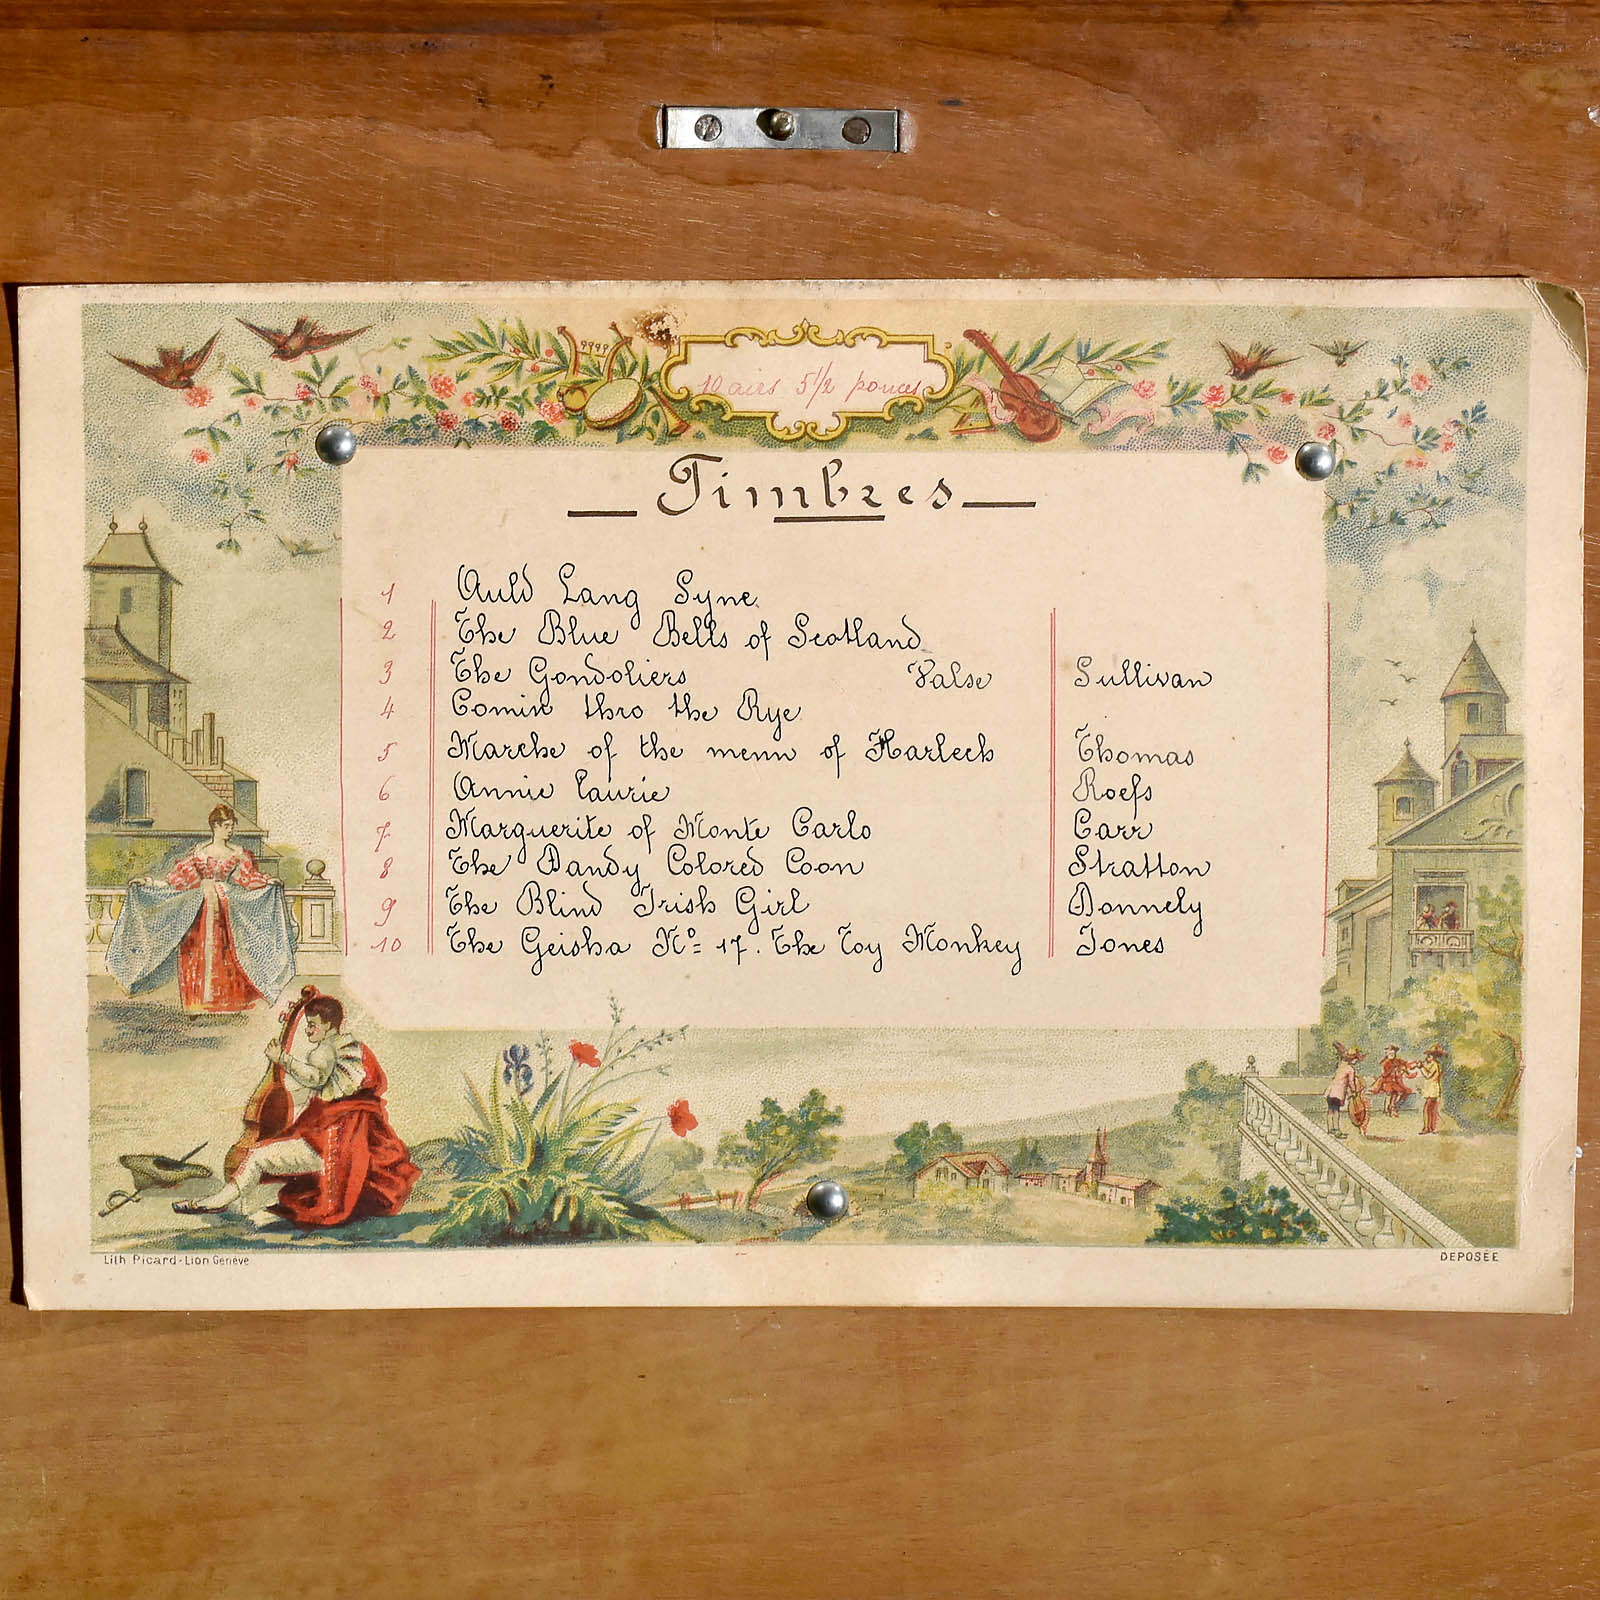 10 airs 5 1/2 pouces
Timbres
1 Auld Lang Syne
2 The Blue Bells of Scotland
3 The Gondoliers Valse Sullivan
4 Comin thro the Rye
5 Marche of the menn of Harlech Thomas
6 Annie Laurie Roefs
7 Marguerite of Monte Carlo Carr
8 The Dandy Colored Coon Stratton
9 The Blind Irish Girl Donnely
10 The Geisha No= 17. The Toy Monkey Jones
Lith Picard-Lion Genève
DEPOSÉE